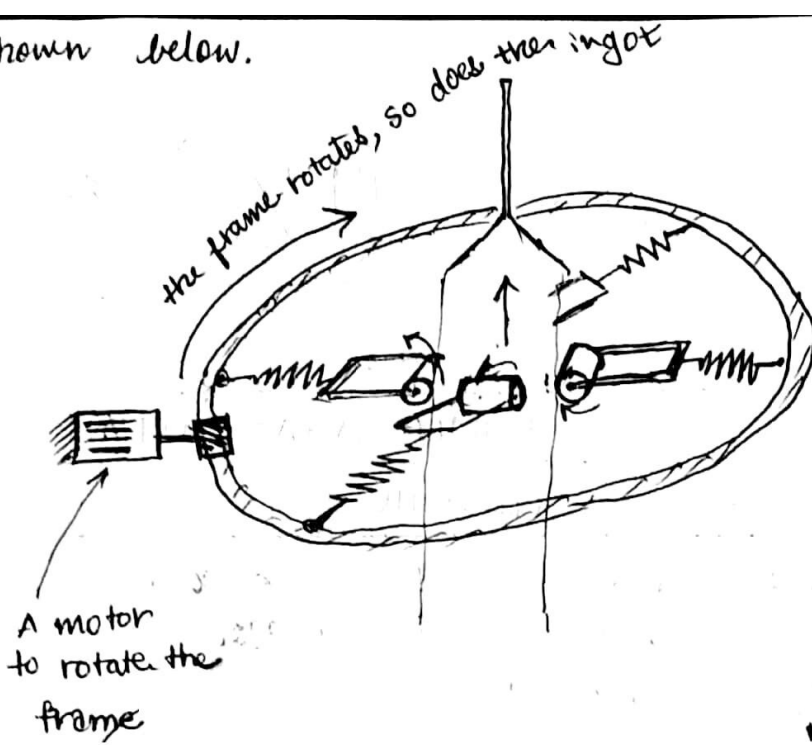 hown below.
the frame rotates, so does then ingot
A motor
to rotate the
frame